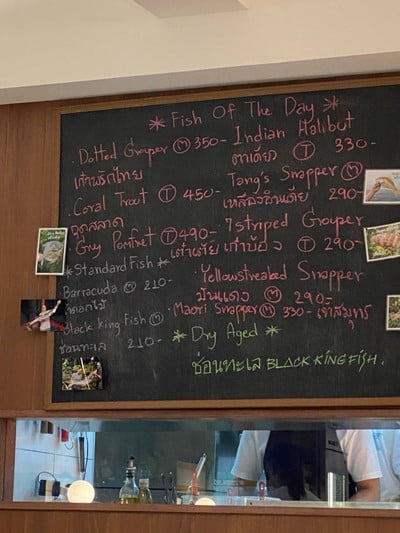 * Fish Of The Day *
· Dotted Grouper Ⓜ 350-
เก๋าพริกไทย
· Coral Trout Ⓣ 450-
กุดสลาด
· Grey Pomfret Ⓣ 490-
* Standard Fish *
· Barracuda Ⓜ 210-
Black King Fish Ⓜ
ช่อนทะเล 210-
Indian Halibut
ตาเดียว Ⓣ 330-
Tang's Snapper Ⓜ
290-
7 striped Grouper
Ⓣ 290-
· Yellowstreaked Snapper
Ⓜ 290-
· Maori Snapper Ⓜ 330-
* Dry Aged *
ช่อนทะเล BLACK KING FISH.